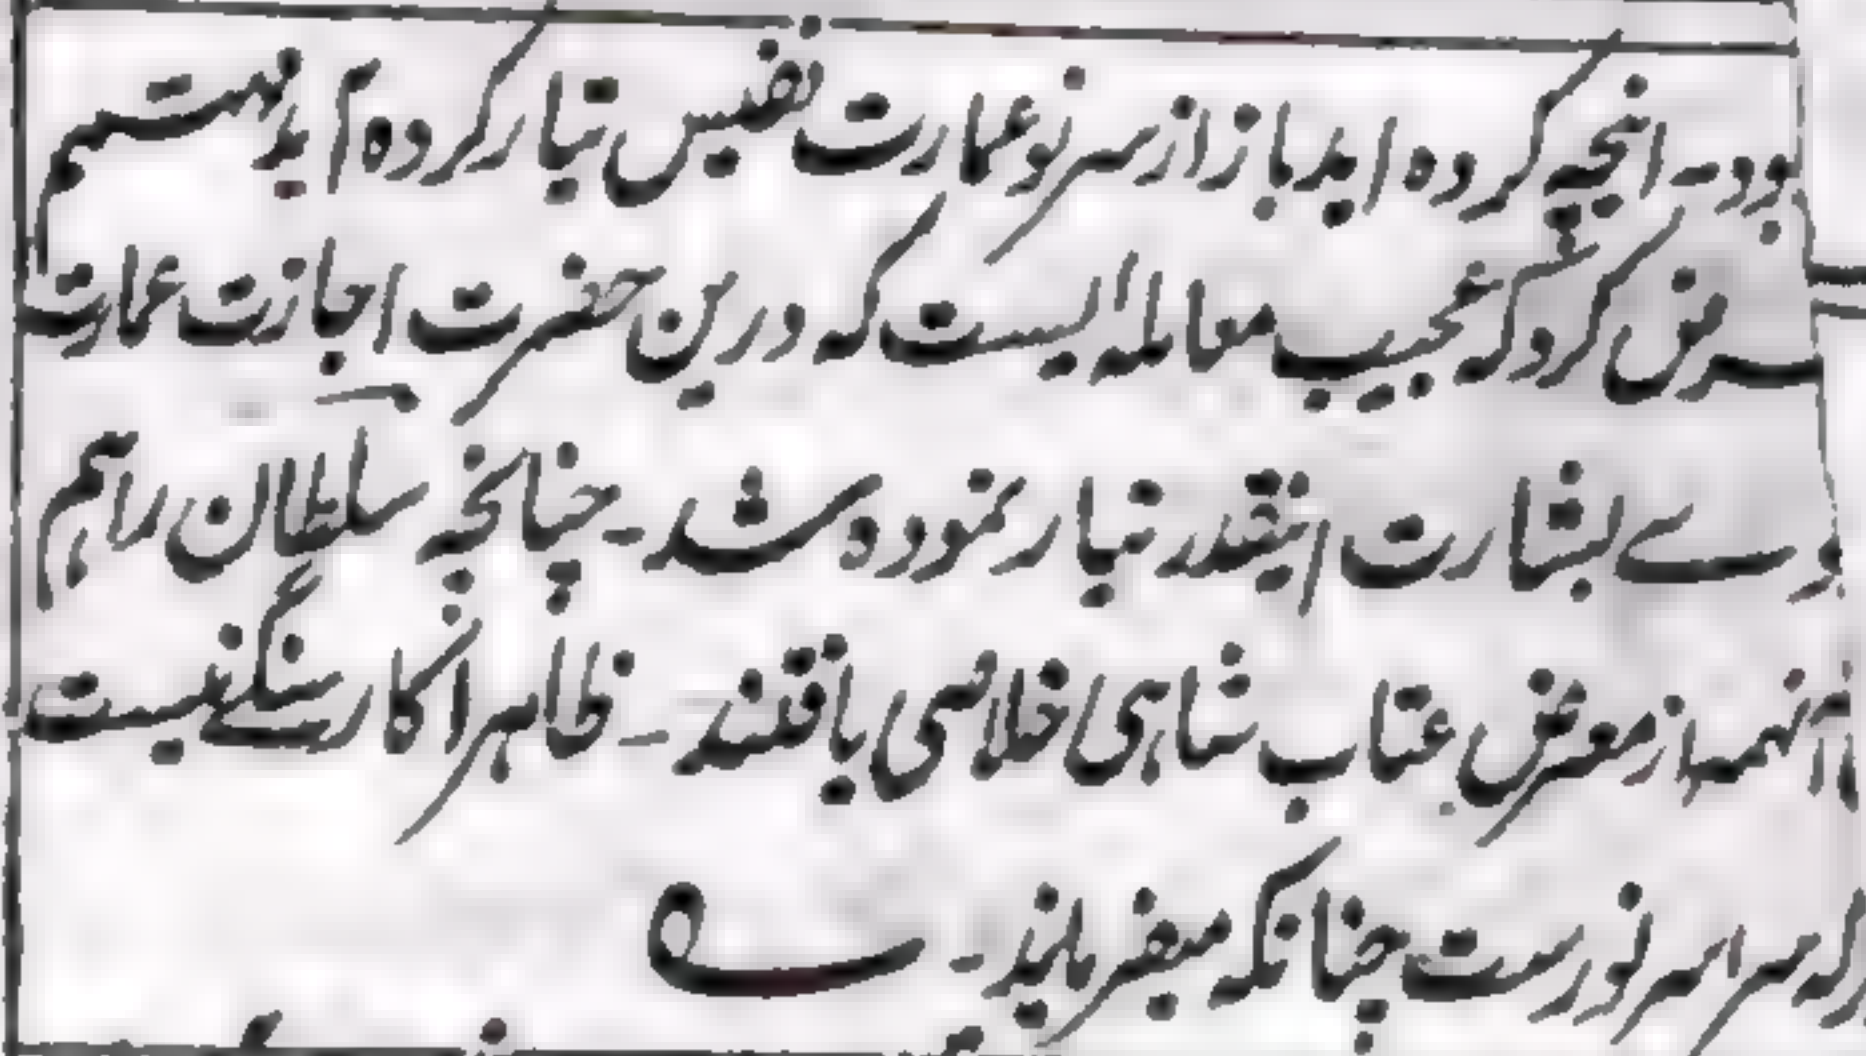 بود۔ انچہ کردہ اید باز از سر نو عمارت نفیس تیار کردہ آید مہتمم
عرض کرد کہ عجیب معاملہ ایست کہ درین حضرت اجازت عمارت
وے بشارت اینقدر تیار نمودہ شد۔ چنانچہ سلطان را ہم
آنہمہ از معرض عتاب شاہی خلاصی یافتند۔ ظاہرا کار سنگے نیست
سراسر نورست چنانکہ میفرمایند۔ ے